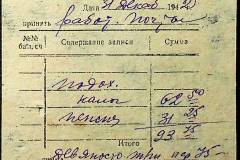 Дана 31 декаб. 194
принять работ. почты
№№ бал. сч. Содержание записи Сумма
подох.
налог 62 50
пенсия 31 25
Итого 93 75
Девяносто три руб 75